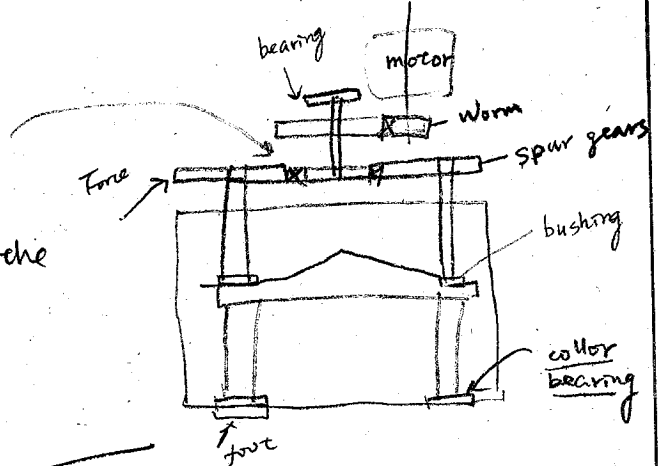 bearing
motor
worm
spur gears
Force
the
bushing
collor
bearing
foot